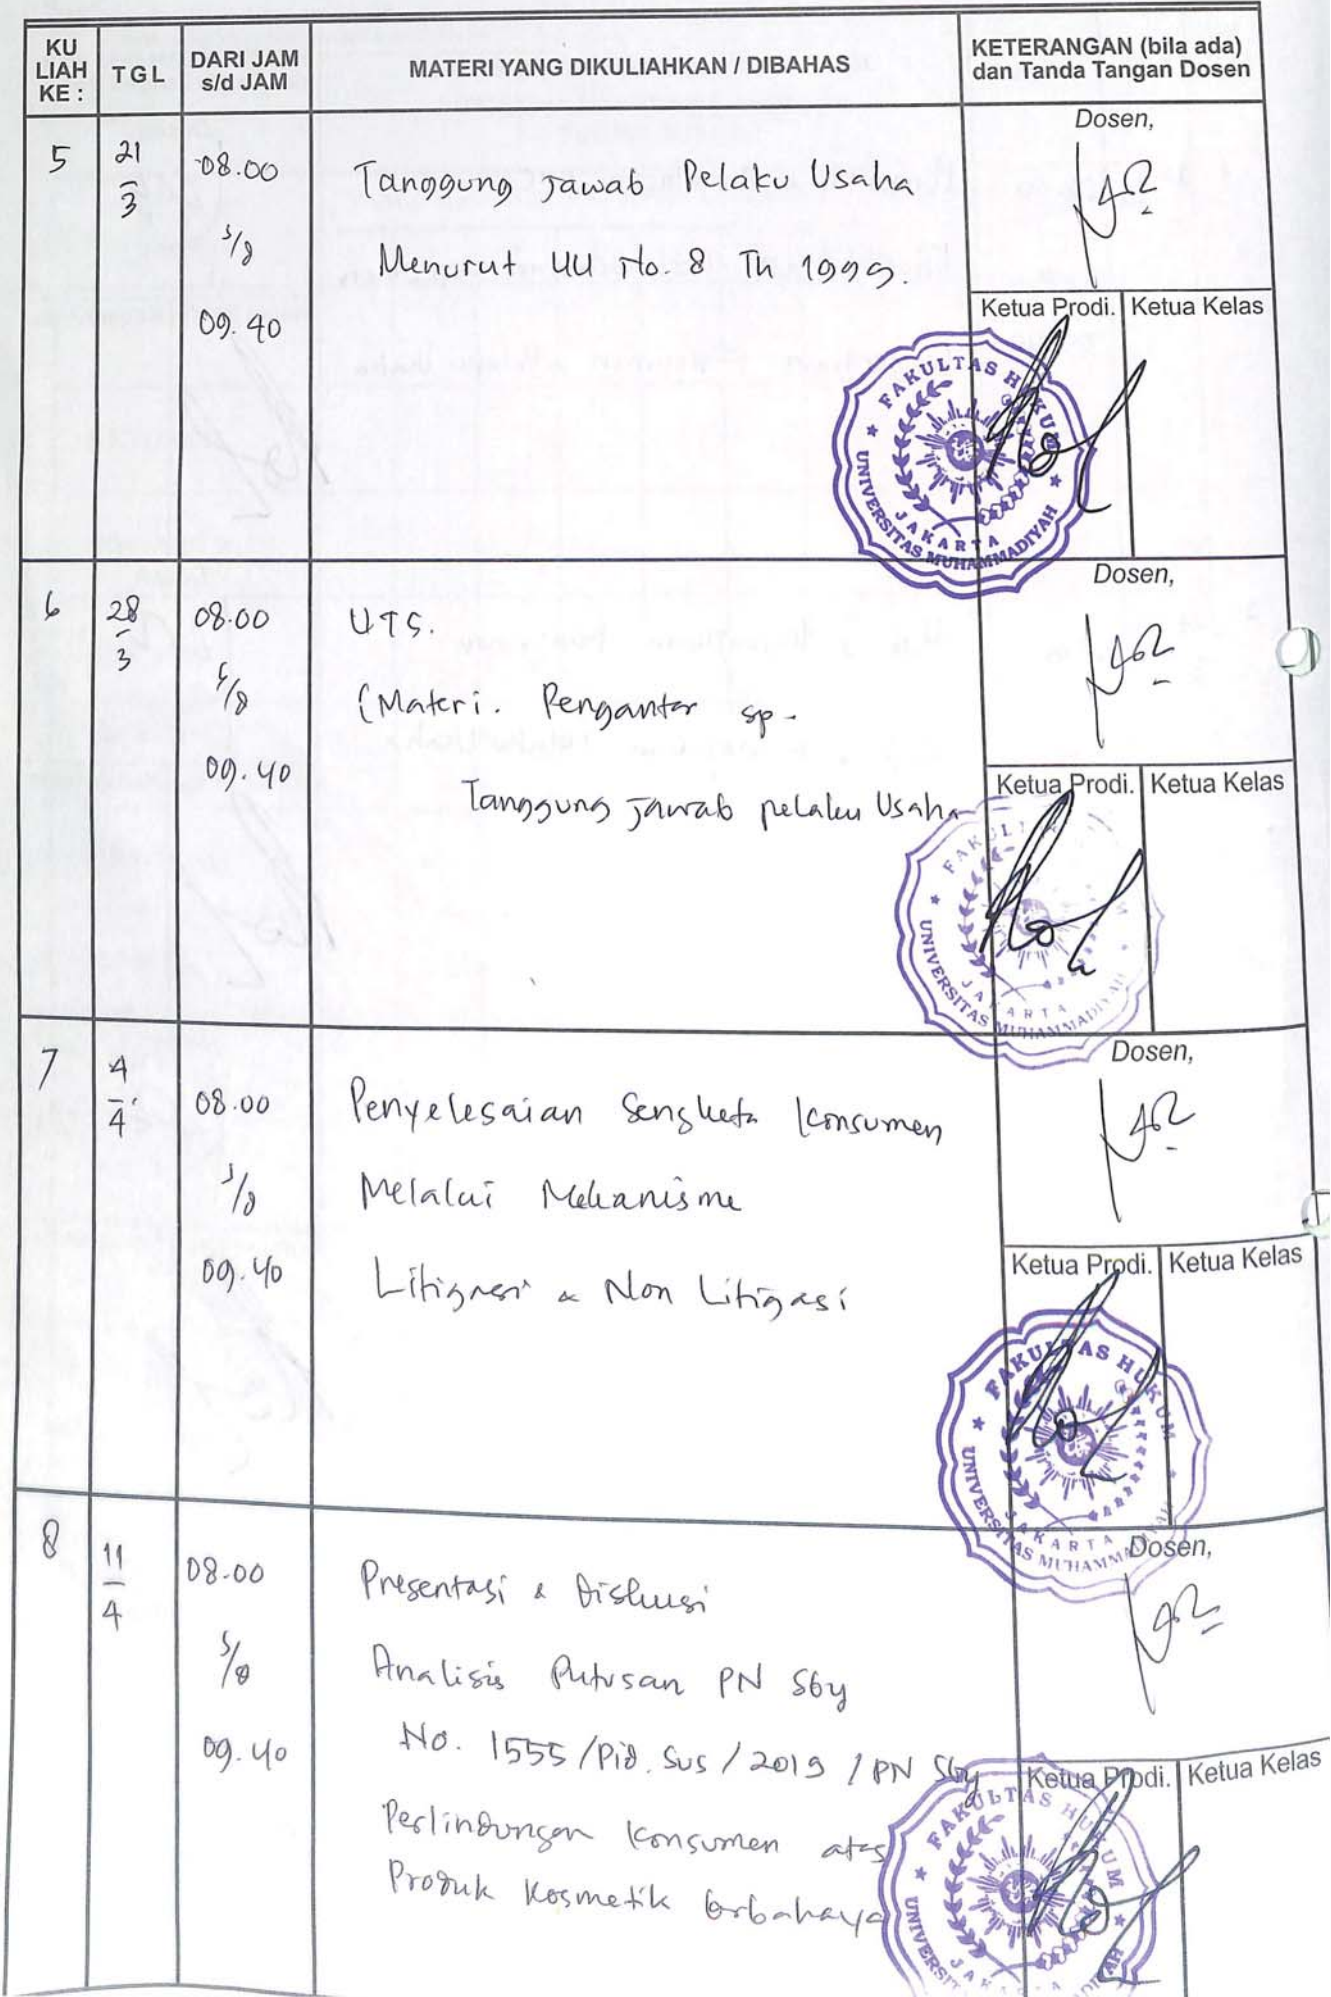 KU LIAH KE :
TGL
DARI JAM s/d JAM
MATERI YANG DIKULIAHKAN / DIBAHAS
KETERANGAN (bila ada) dan Tanda Tangan Dosen
5
21/3
08.00
s/d
09.40
Tanggung Jawab Pelaku Usaha
Menurut UU No. 8 Th 1999.
Dosen,
Ketua Prodi.
Ketua Kelas
FAKULTAS HUKUM
UNIVERSITAS MUHAMMADIYAH
JAKARTA
6
28/3
08.00
s/d
09.40
UTS.
(Materi. Pengantar sp.
Tanggung Jawab pelaku Usaha
Dosen,
Ketua Prodi.
Ketua Kelas
UNIVERSITAS MUHAMMADIYAH
JAKARTA
7
4/4
08.00
s/d
09.40
Penyelesaian Sengketa Konsumen
Melalui Mekanisme
Litigasi & Non Litigasi
Dosen,
Ketua Prodi.
Ketua Kelas
FAKULTAS HUKUM
UNIVERSITAS MUHAMMADIYAH
JAKARTA
8
11/4
08.00
s/d
09.40
Presentasi & Diskusi
Analisis Putusan PN Sby
No. 1555/Pid.Sus/2019/PN Sby
Perlindungan Konsumen atas
Produk Kosmetik berbahaya
Dosen,
Ketua Prodi.
Ketua Kelas
FAKULTAS HUKUM